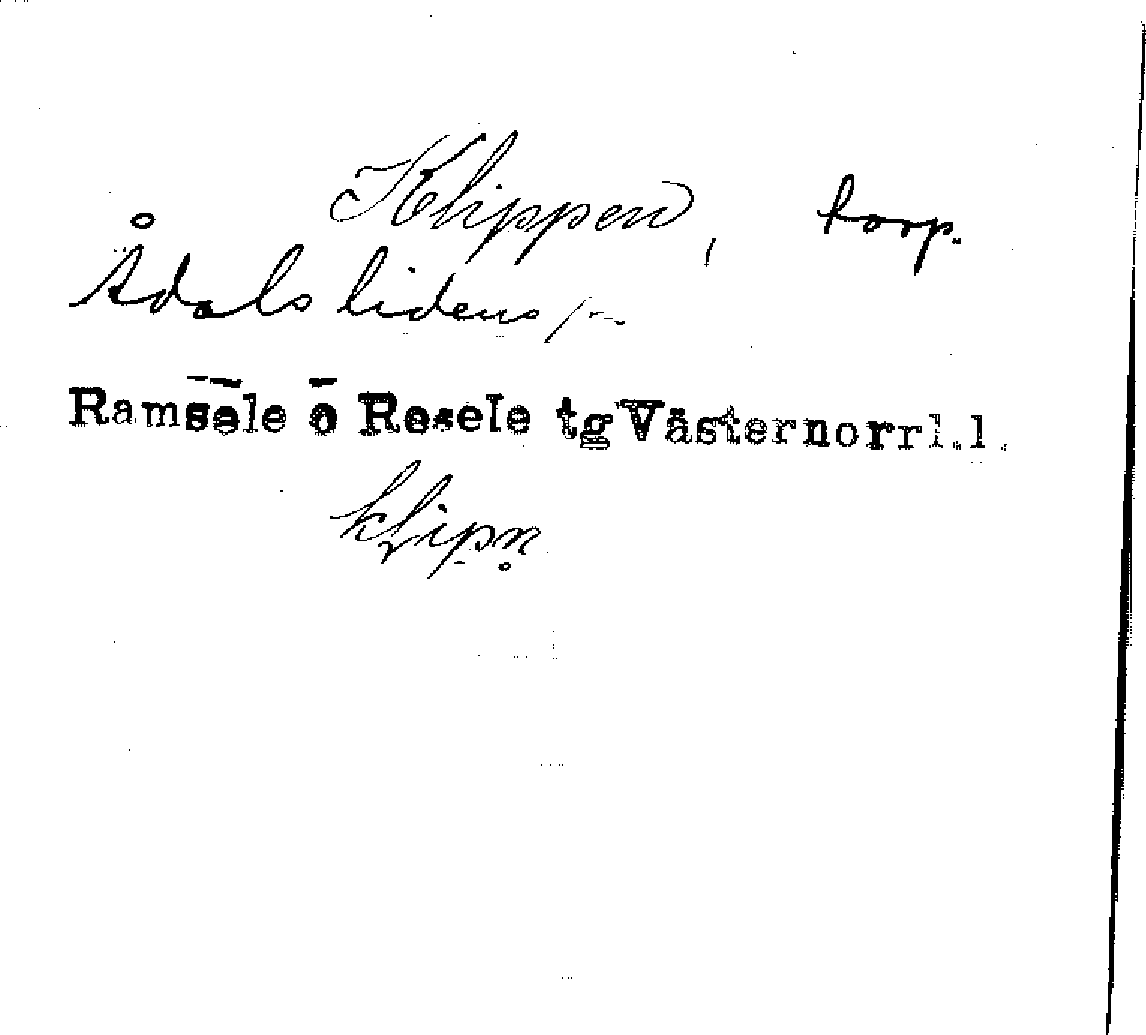 Klippen, torp.
Ådalslidens /--
Ramsele o Resele tg Västernorrl.l.
klipn